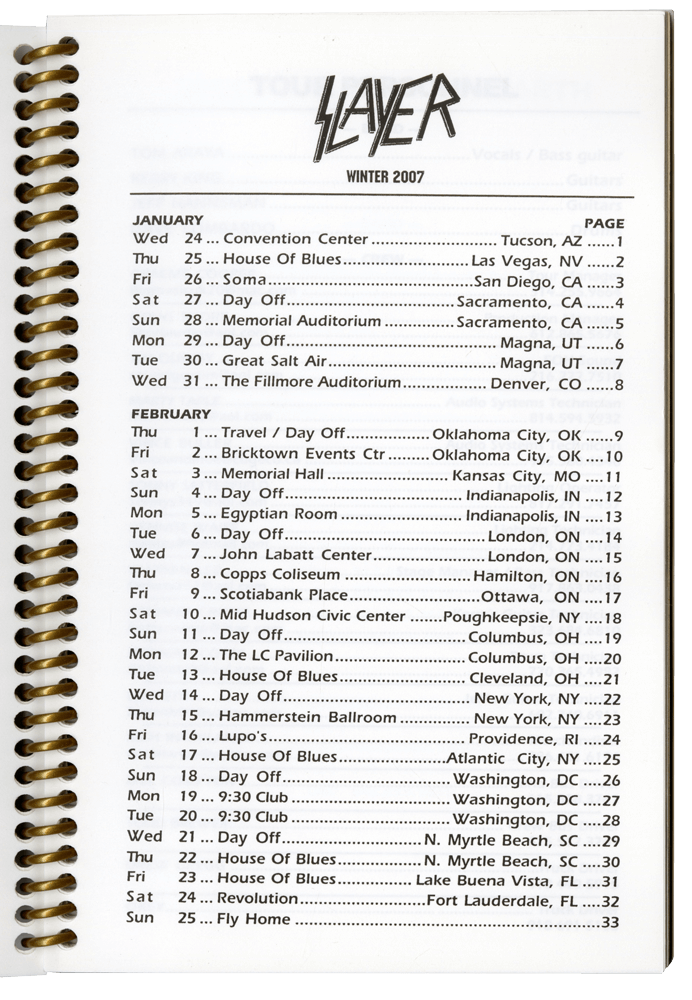 SLAYER
WINTER 2007
JANUARY PAGE
Wed 24 ... Convention Center ................................ Tucson, AZ ......1
Thu 25 ... House Of Blues................................ Las Vegas, NV .....2
Fri 26 ... Soma................................San Diego, CA ....3
Sat 27 ... Day Off................................ Sacramento, CA ....4
Sun 28 ... Memorial Auditorium .................. Sacramento, CA ....5
Mon 29 ... Day Off................................ Magna, UT .....6
Tue 30 ... Great Salt Air................................ Magna, UT .....7
Wed 31 ... The Fillmore Auditorium.................... Denver, CO ....8
FEBRUARY
Thu 1 ... Travel / Day Off.................... Oklahoma City, OK ......9
Fri 2 ... Bricktown Events Ctr ......... Oklahoma City, OK ....10
Sat 3 ... Memorial Hall ............................ Kansas City, MO ....11
Sun 4 ... Day Off................................ Indianapolis, IN ....12
Mon 5 ... Egyptian Room ............................ Indianapolis, IN ....13
Tue 6 ... Day Off................................ London, ON ....14
Wed 7 ... John Labatt Center............................ London, ON ....15
Thu 8 ... Copps Coliseum ............................ Hamilton, ON ....16
Fri 9 ... Scotiabank Place............................Ottawa, ON ....17
Sat 10 ... Mid Hudson Civic Center .......Poughkeepsie, NY ....18
Sun 11 ... Day Off................................ Columbus, OH ....19
Mon 12 ... The LC Pavilion............................ Columbus, OH ....20
Tue 13 ... House Of Blues............................ Cleveland, OH ....21
Wed 14 ... Day Off................................ New York, NY ....22
Thu 15 ... Hammerstein Ballroom ............... New York, NY ....23
Fri 16 ... Lupo's ................................ Providence, RI ....24
Sat 17 ... House Of Blues........................Atlantic City, NY ....25
Sun 18 ... Day Off................................Washington, DC ....26
Mon 19 ... 9:30 Club ................................ Washington, DC ....27
Tue 20 ... 9:30 Club ................................ Washington, DC ....28
Wed 21 ... Day Off............................ N. Myrtle Beach, SC ....29
Thu 22 ... House Of Blues.................. N. Myrtle Beach, SC ....30
Fri 23 ... House Of Blues................ Lake Buena Vista, FL ....31
Sat 24 ... Revolution............................Fort Lauderdale, FL ....32
Sun 25 ... Fly Home ................................................33